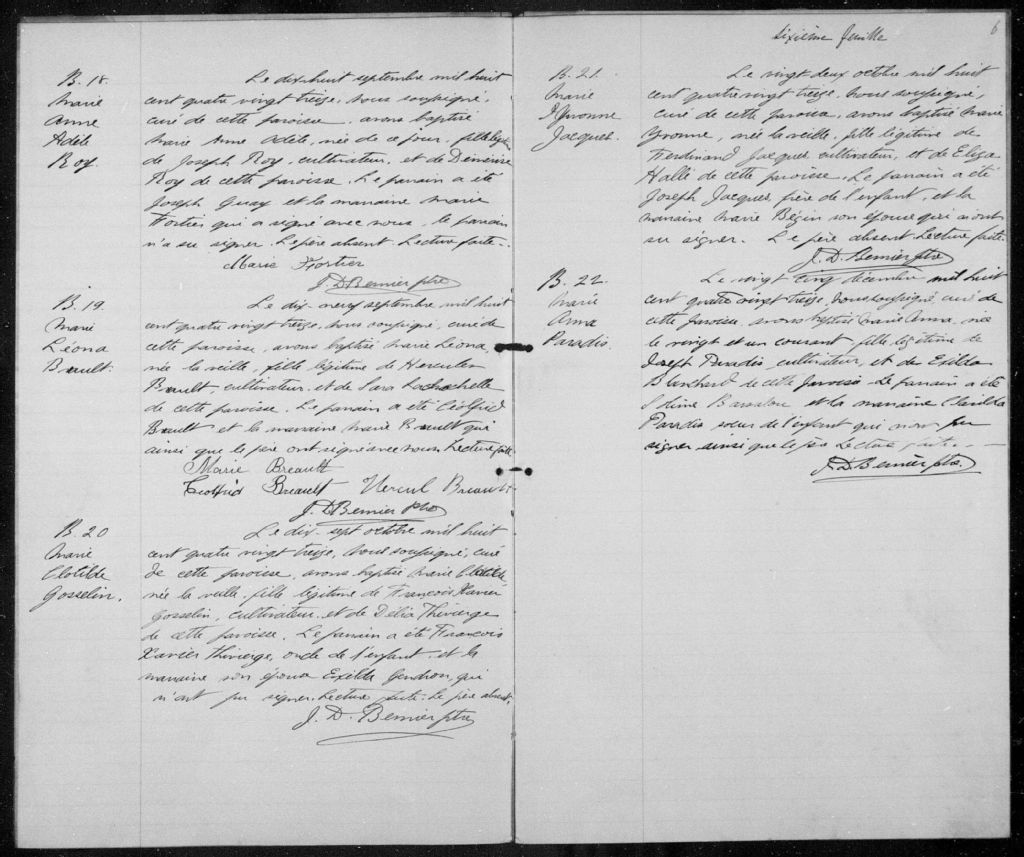 B. 18.
Marie
Anne
Adèle
Roy.
Le dix huit septembre mil huit
cent quatre vingt treize, nous soussigné,
curé de cette paroisse, avons baptisé
Marie Anne Adèle, née de ce jour, fille légitime
de Joseph Roy, cultivateur, et de Démérise
Roy de cette paroisse. Le parrain a été
Joseph Guay et la marraine Marie
Fortier qui a signé avec nous, le parrain
n'a su signer. Le père absent. Lecture faite.
Marie Fortier
J. D. Bernier ptre
B. 19.
Marie
Léona
Brault.
Le dix-neuf septembre mil huit
cent quatre vingt treize, nous soussigné, curé de
cette paroisse, avons baptisé Marie Léona,
née la veille, fille légitime de Herculen
Brault, cultivateur, et de Sara Larochelle
de cette paroisse. Le parrain a été Ceolfrid
Brault et la marraine Marie Brault qui
ainsi que le père ont signé avec nous. Lecture faite
Marie Breault
Ceolfrid Breault Hercul Breault
J. D. Bernier ptre
B. 20
Marie
Clotilde
Gosselin.
Le dix-sept octobre mil huit
cent quatre vingt treize, nous soussigné, curé
de cette paroisse, avons baptisé Marie Clotilde,
née la veille, fille légitime de François Xavier
Gosselin, cultivateur, et de Délia Thivierge
de cette paroisse. Le parrain a été François
Xavier Thivierge, oncle de l'enfant, et la
marraine son épouse Exilda Gendron, qui
n'ont pu signer. Lecture faite. Le père absent.
J. D. Bernier ptre
Sixième feuille
6
B. 21.
Marie
Yvonne
Jacques.
Le vingt deux octobre mil huit
cent quatre vingt treize, nous soussigné,
curé de cette paroisse, avons baptisé Marie
Yvonne, née la veille, fille légitime de
Ferdinand Jacques cultivateur, et de Eliza
Hallé de cette paroisse. Le parrain a été
Joseph Jacques, père de l'enfant, et la
marraine Marie Bégin son épouse qui n'ont
su signer. Le père absent. Lecture faite.
J. D. Bernier ptre
B. 22.
Marie
Anna
Paradis.
Le vingt cinq décembre mil huit
cent quatre vingt treize, nous soussigné, curé de
cette paroisse, avons baptisé Marie Anna, née
le vingt et un courant, fille légitime de
Joseph Paradis, cultivateur, et de Exilda
Blanchard de cette paroisse. Le parrain a été
et la marraine Clorilda
Paradis soeur de l'enfant qui n'ont pu
signer ainsi que le père. Lecture faite.
J. D. Bernier ptre.